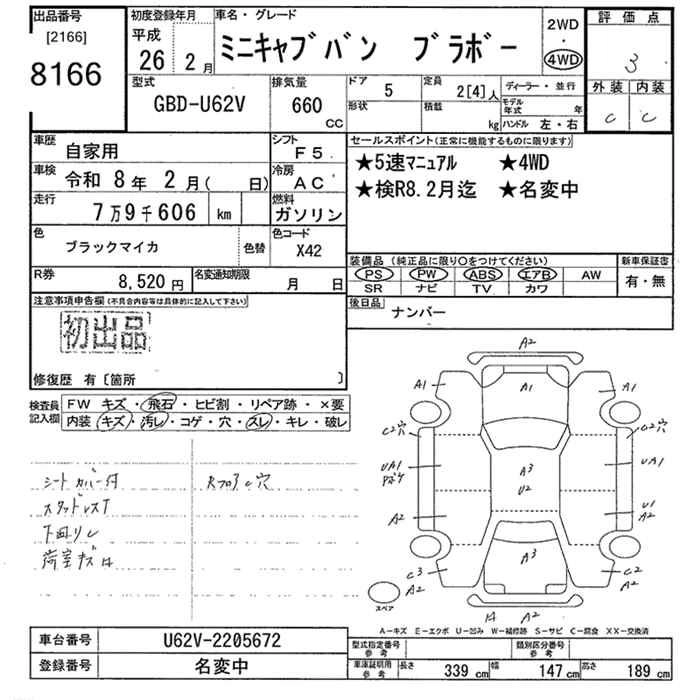 出品番号
[2166]
8166
初度登録年月
平成
26年 2月
車名・グレード
ミニキャブバン ブラボー
2WD
・
4WD
評価点
3
外装 内装
C C
型式
GBD-U62V
排気量
660
CC
ドア
5
形状
定員
2[4]人
積載
kg
ディーラー・並行
モデル年式 年
ハンドル 左・右
車歴
自家用
シフト
F5
車検
令和 8年 2月( 日)
冷房
AC
走行
7万9千606 km
燃料
ガソリン
色
ブラックマイカ
色替
色コード
X42
R券
8,520円
名変通知期限
月 日
セールスポイント(正常に機能するものに限ります)
★5速マニュアル ★4WD
★検R8.2月迄 ★名変中
装備品(純正品に限り○をつけてください)
PS PW ABS エアB AW
SR ナビ TV カワ
新車保証書
有・無
後日品
ナンバー
注意事項申告欄(不具合内容等は具体的に記入して下さい)
初出品
修復歴 有〔箇所 〕
検査員記入欄
FW キズ・飛石・ヒビ割・リペア跡・×要
内装 キズ・汚レ・コゲ・穴・スレ・キレ・破レ
シートカバー付
Rフロアc穴
スタッドレスT
下回りc
荷室キズ凹
A2
A1
A1
A1
C2穴
C2穴
UA1
A3
U2
UA1
A2
U1
A2
A3
C3
A2
C2
A2
スペア
A2
A-キズ E-エクボ U-凹み W-補修跡 S-サビ C-腐食 XX-交換済
車台番号
U62V-2205672
登録番号
名変中
型式指定番号
参考
類別区分番号
参考
車庫証明用
参考
長さ 339cm 幅 147cm 高さ 189cm